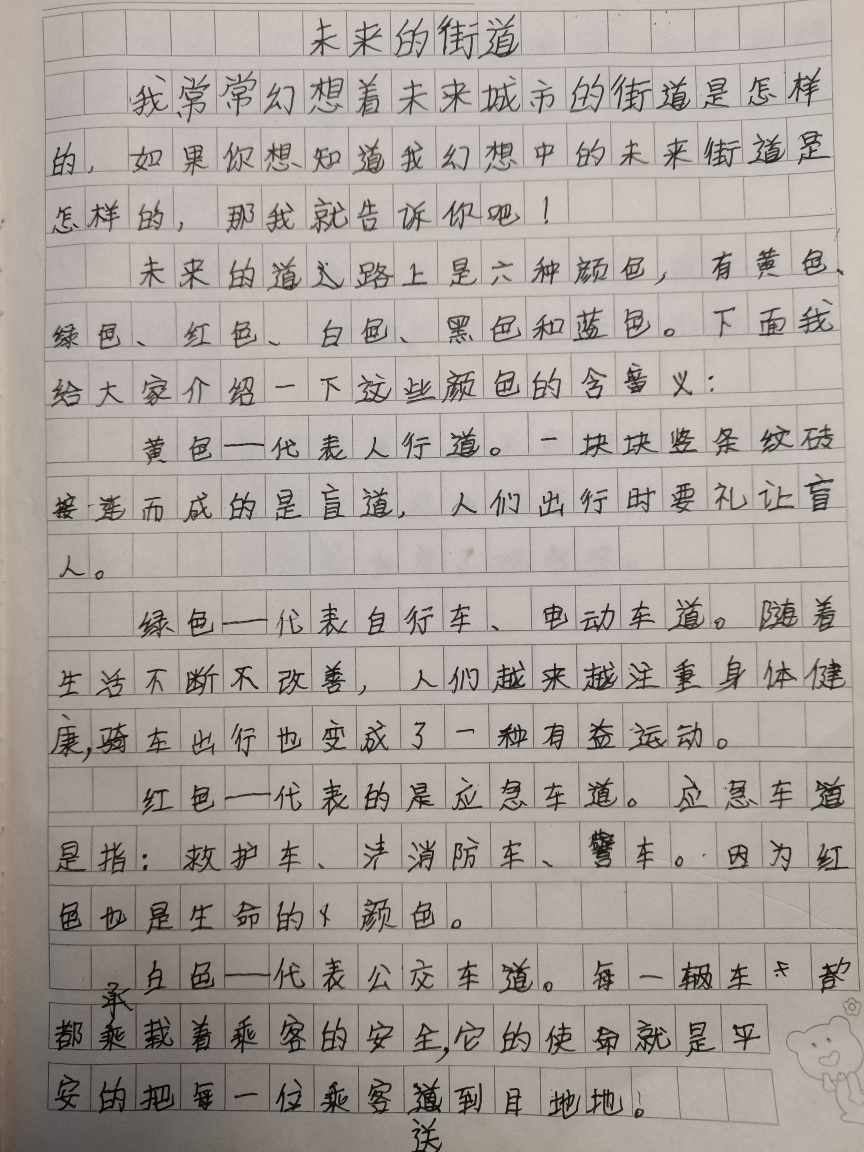 未来的街道
我常常幻想着未来城市的街道是怎样
的，如果你想知道我幻想中的未来街道是
怎样的，那我就告诉你吧！
未来的道路上是六种颜色，有黄色、
绿色、红色、白色、黑色和蓝色。下面我
给大家介绍一下这些颜色的含意义：
黄色——代表人行道。一块块竖条纹砖
接连而成的是盲道，人们出行时要礼让盲
人。
绿色——代表自行车、电动车道。随着
生活不断不改善，人们越来越注重身体健
康，骑车出行也变成了一种有益运动。
红色——代表的是应急车道。应急车道
是指：救护车、消防车、警车。因为红
色也是生命的颜色。
白色——代表公交车道。每一辆车
承
都乘载着乘客的安全，它的使命就是平
安的把每一位乘客道到目地地。
送